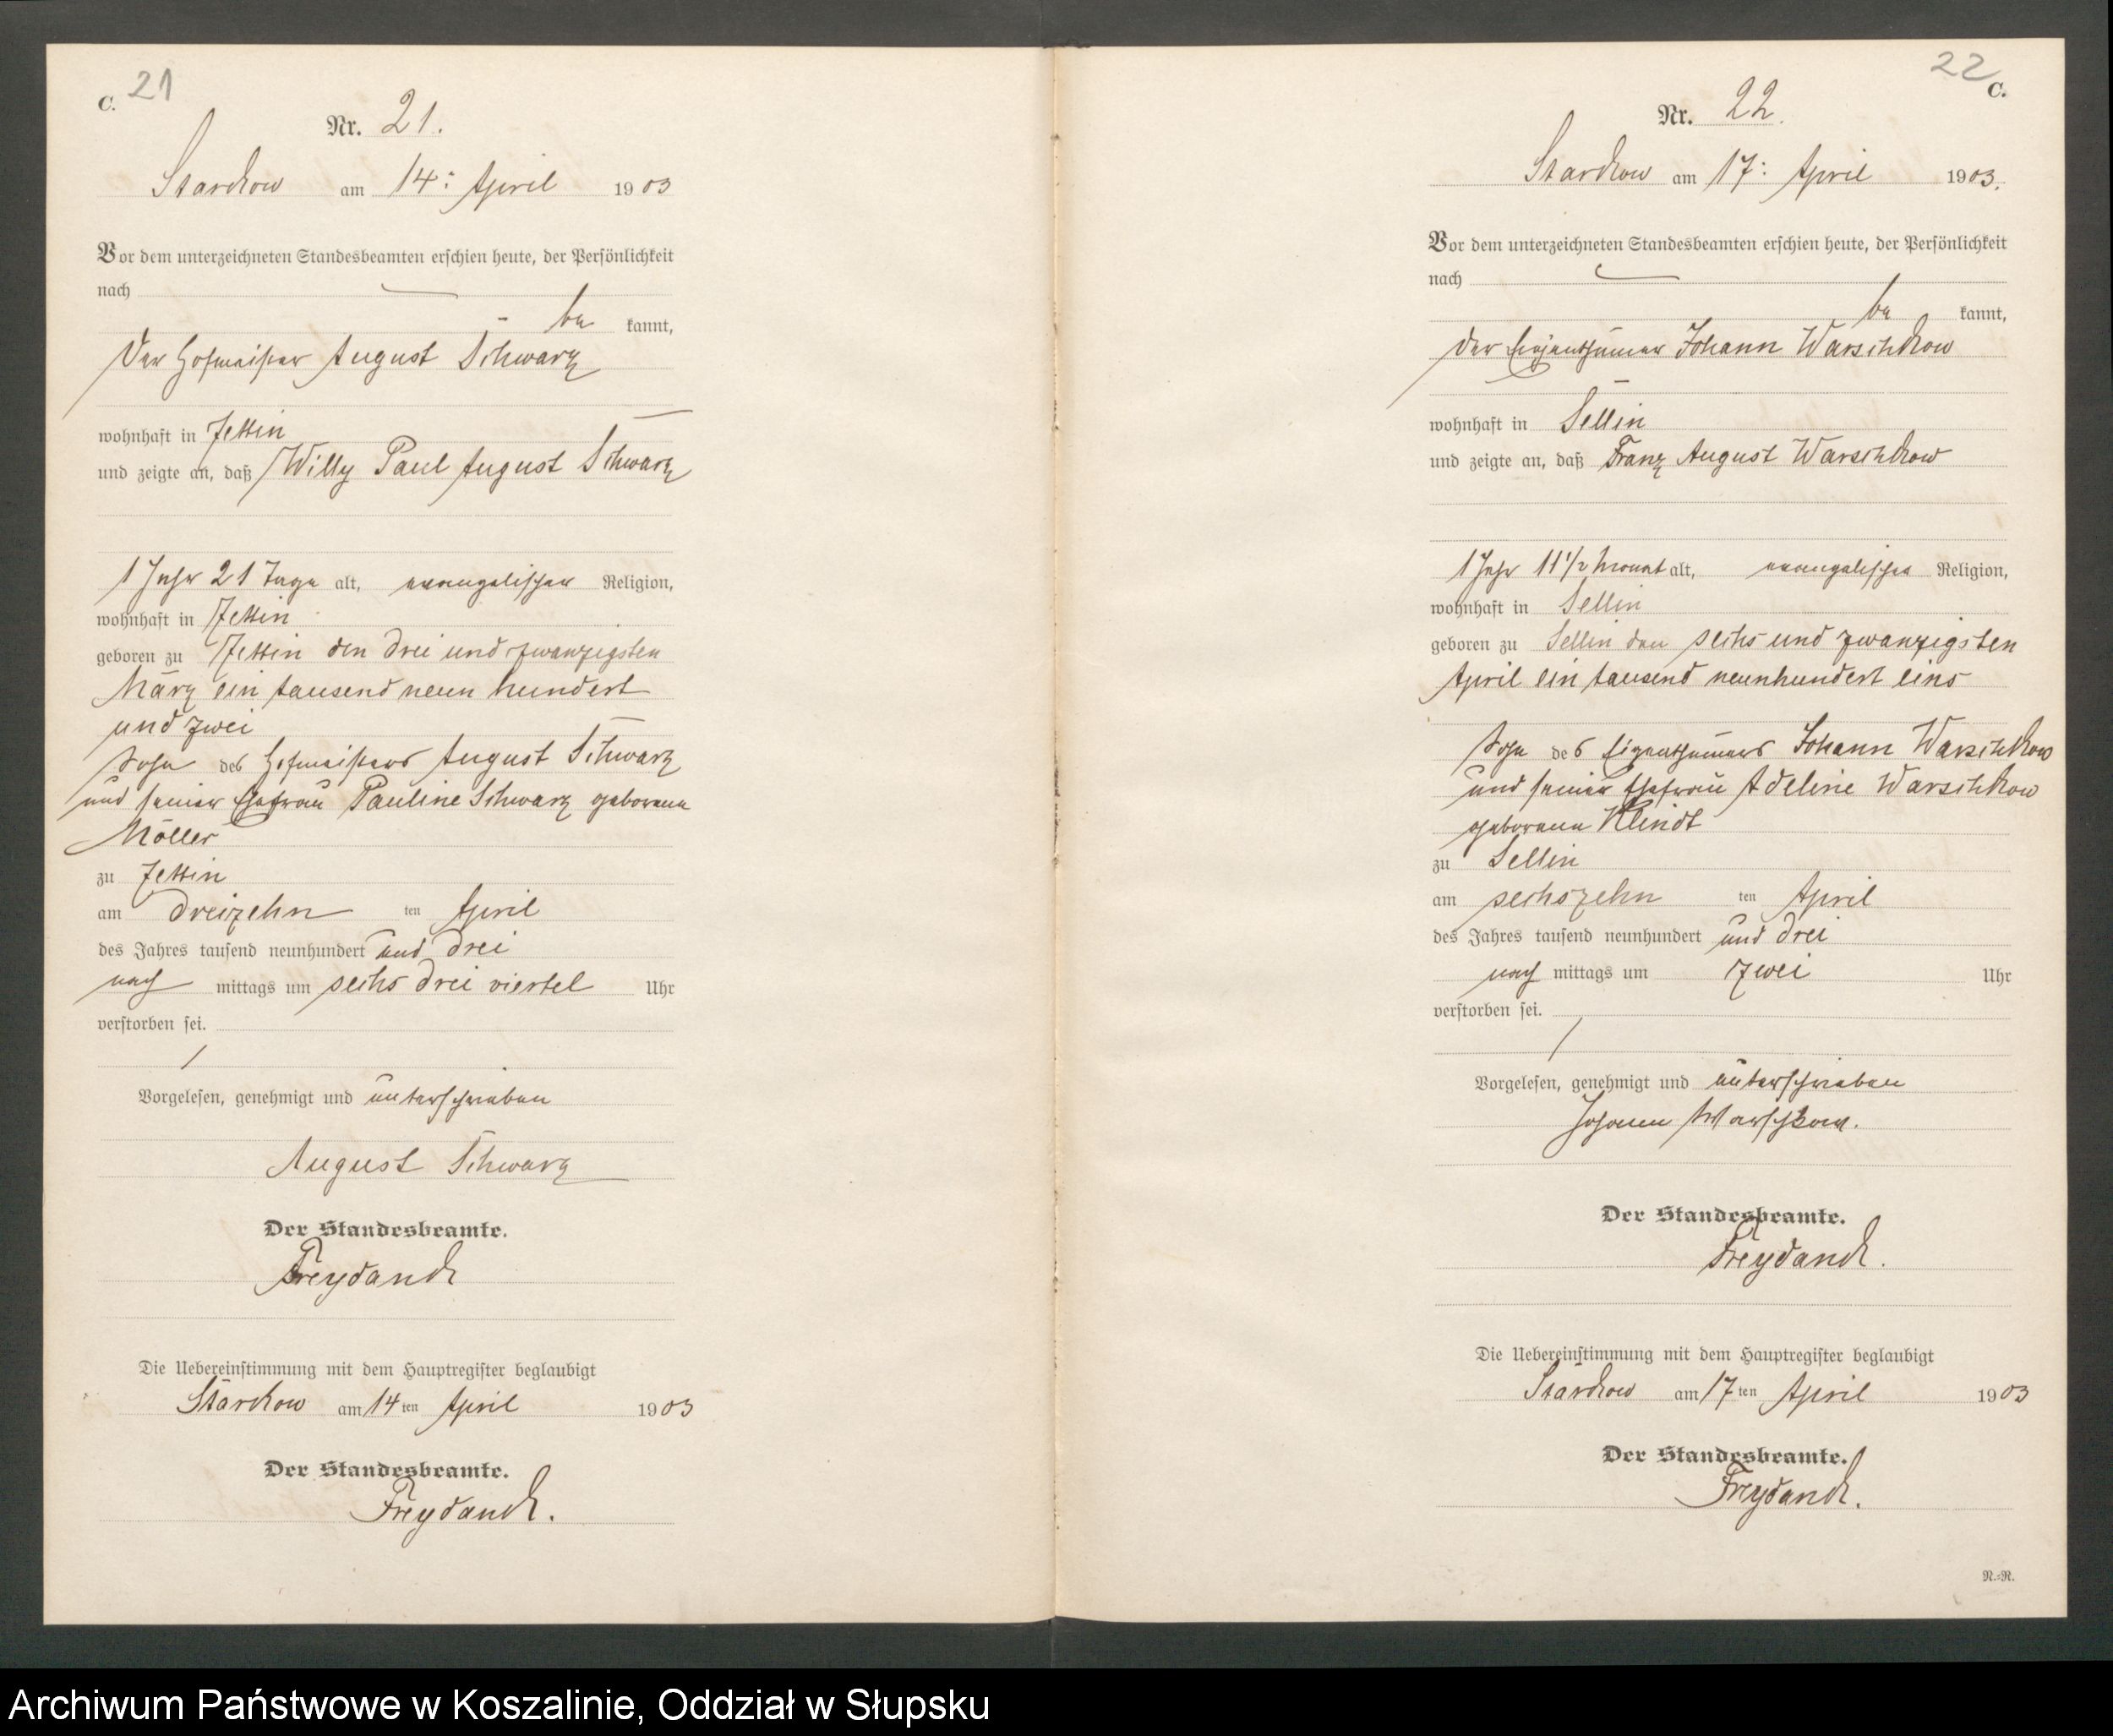 C. 21
Nr. 21.
Starckow am 14: April 1903
Vor dem unterzeichneten Standesbeamten erschien heute, der Persönlichkeit
nach
be kannt,
der Hofmeister August Schwarz
wohnhaft in Jettin
und zeigte an, daß Willy Paul August Schwarz
1 Jahr 21 Tage alt, evangelischer Religion,
wohnhaft in Jettin
geboren zu Jettin den drei und zwanzigsten
März ein tausend neun hundert
und zwei
Sohn des Hofmeisters August Schwarz
und seiner Ehefrau Pauline Schwarz geborene
Möller
zu Jettin
am dreizehn ten April
des Jahres tausend neunhundert und drei
nach mittags um sechs drei viertel Uhr
verstorben sei.
Vorgelesen, genehmigt und unterschrieben
August Schwarz
Der Standesbeamte.
Freydanck
Die Uebereinstimmung mit dem Hauptregister beglaubigt
Starckow am 14 ten April 1903
Der Standesbeamte.
Freydanck.
22 C.
Nr. 22.
Starckow am 17: April 1903.
Vor dem unterzeichneten Standesbeamten erschien heute, der Persönlichkeit
nach
be kannt,
der Eigenthümer Johann Warschkow
wohnhaft in Sellin
und zeigte an, daß Franz August Warschkow
1 Jahr 11 1/2 Monat alt, evangelischer Religion,
wohnhaft in Sellin
geboren zu Sellin den sechs und zwanzigsten
April ein tausend neunhundert eins
Sohn des Eigenthümers Johann Warschkow
und seiner Ehefrau Adeline Warschkow
geborene Klindt
zu Sellin
am sechszehn ten April
des Jahres tausend neunhundert und drei
nach mittags um zwei Uhr
verstorben sei.
Vorgelesen, genehmigt und unterschrieben
Johann Warschkow.
Der Standesbeamte.
Freydanck.
Die Uebereinstimmung mit dem Hauptregister beglaubigt
Starckow am 17 ten April 1903
Der Standesbeamte.
Freydanck.
N.=N.
Archiwum Państwowe w Koszalinie, Oddział w Słupsku